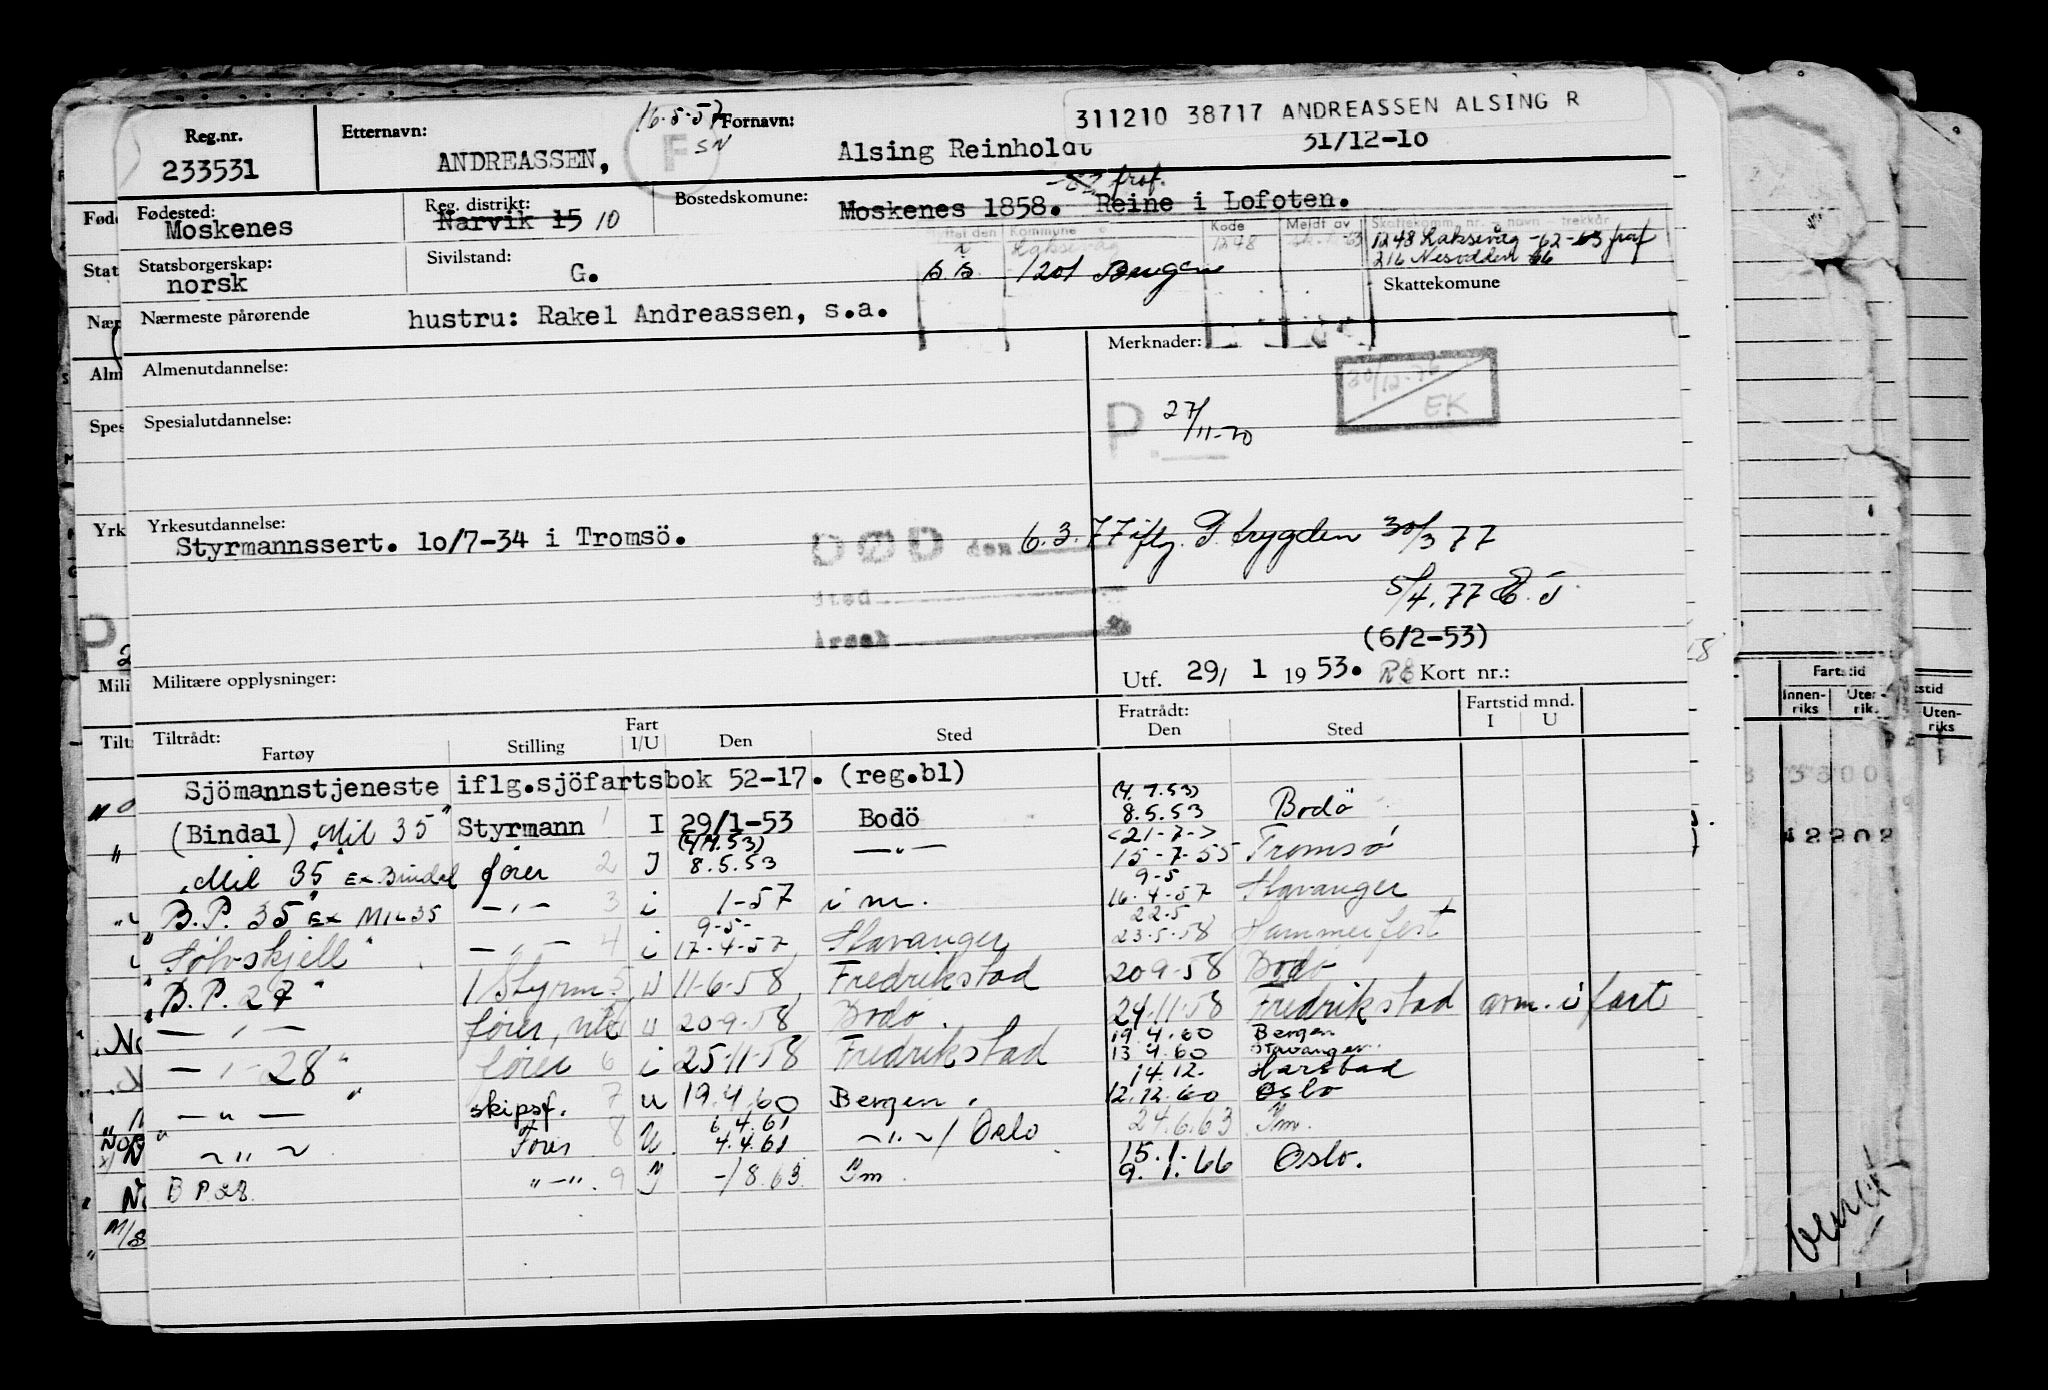 311210 38717 ANDREASSEN ALSING R
Reg.nr. Etternavn: 16-5-57 Fornavn:
233531 ANDREASSEN, F SN Alsing Reinholdt 31/12-10
Fødested: Reg. distrikt: Bostedskomune: -62 fraf.
Moskenes Narvik 15 10 Moskenes 1858. Reine i Lofoten.
Kommune Kode Meldt av Skattekomm. nr. og navn - trekkår
Laksevåg 1248 1248 Laksevåg -62-63 fraf
Statsborgerskap: Sivilstand: 1201 Bergen 216 Nesodden 66
norsk G. Skattekomune
Nærmeste pårørende hustru: Rakel Andreassen, s.a.
Almenutdannelse: Merknader:
30/12-76 EK
Spesialutdannelse: P 27/11-70
Yrkesutdannelse:
Styrmannssert. 10/7-34 i Tromsö. DØD den 6.3.77 iflg. P. trygden 30/3 77
Sted 5/4.77
Årsak (6/2-53)
Militære opplysninger: Utf. 29/ 1 1953. Kort nr.:
Tiltrådt: Fart Fratrådt: Fartstid mnd.
Fartøy Stilling I/U Den Sted Den Sted I U
Sjömannstjeneste iflg.sjöfartsbok 52-17. (reg.bl)
(4.7.53)
(Bindal) "Mil 35" Styrmann 1 I 29/1-53 Bodö 8.5.53 Bodö
<21-7->
"Mil 35" Ex. Bindal fører 2 I 8.5.53 —"— 15-7-55 Tromsø
9-5
B.P. 35" Ex Mil 35 —"— 3 i 1-57 i m. 16-4-57 Stavanger
9-5- 22.5
"Sølvskjell" —"— 4 i 17-4-57 Stavanger 23-5-58 Hammerfest
"B.P. 27" 1 Styrm. 5 u 11-6-58 Fredrikstad 20-9-58 Bodø
—"— fører, u 20-9-58 Bodø 24-11-58 Fredrikstad anm. i fart
19.4.60 Bergen
—"— 28" fører 6 i 25-11-58 Fredrikstad 13 4.60 Stavanger
14.12. Harstad
—"— skipsf. 7 u 19.4.60 Bergen. 12.12.60 Oslo
6.4.61
—"— Fører 8 U 4.4.61 —"—/Oslo 24.6.63 Im.
15.1.
B P 28. "—". 9 I -/8.63. Im 9.1.66 Oslo.
Fartstid
Innen-riks Uten-riks
42202